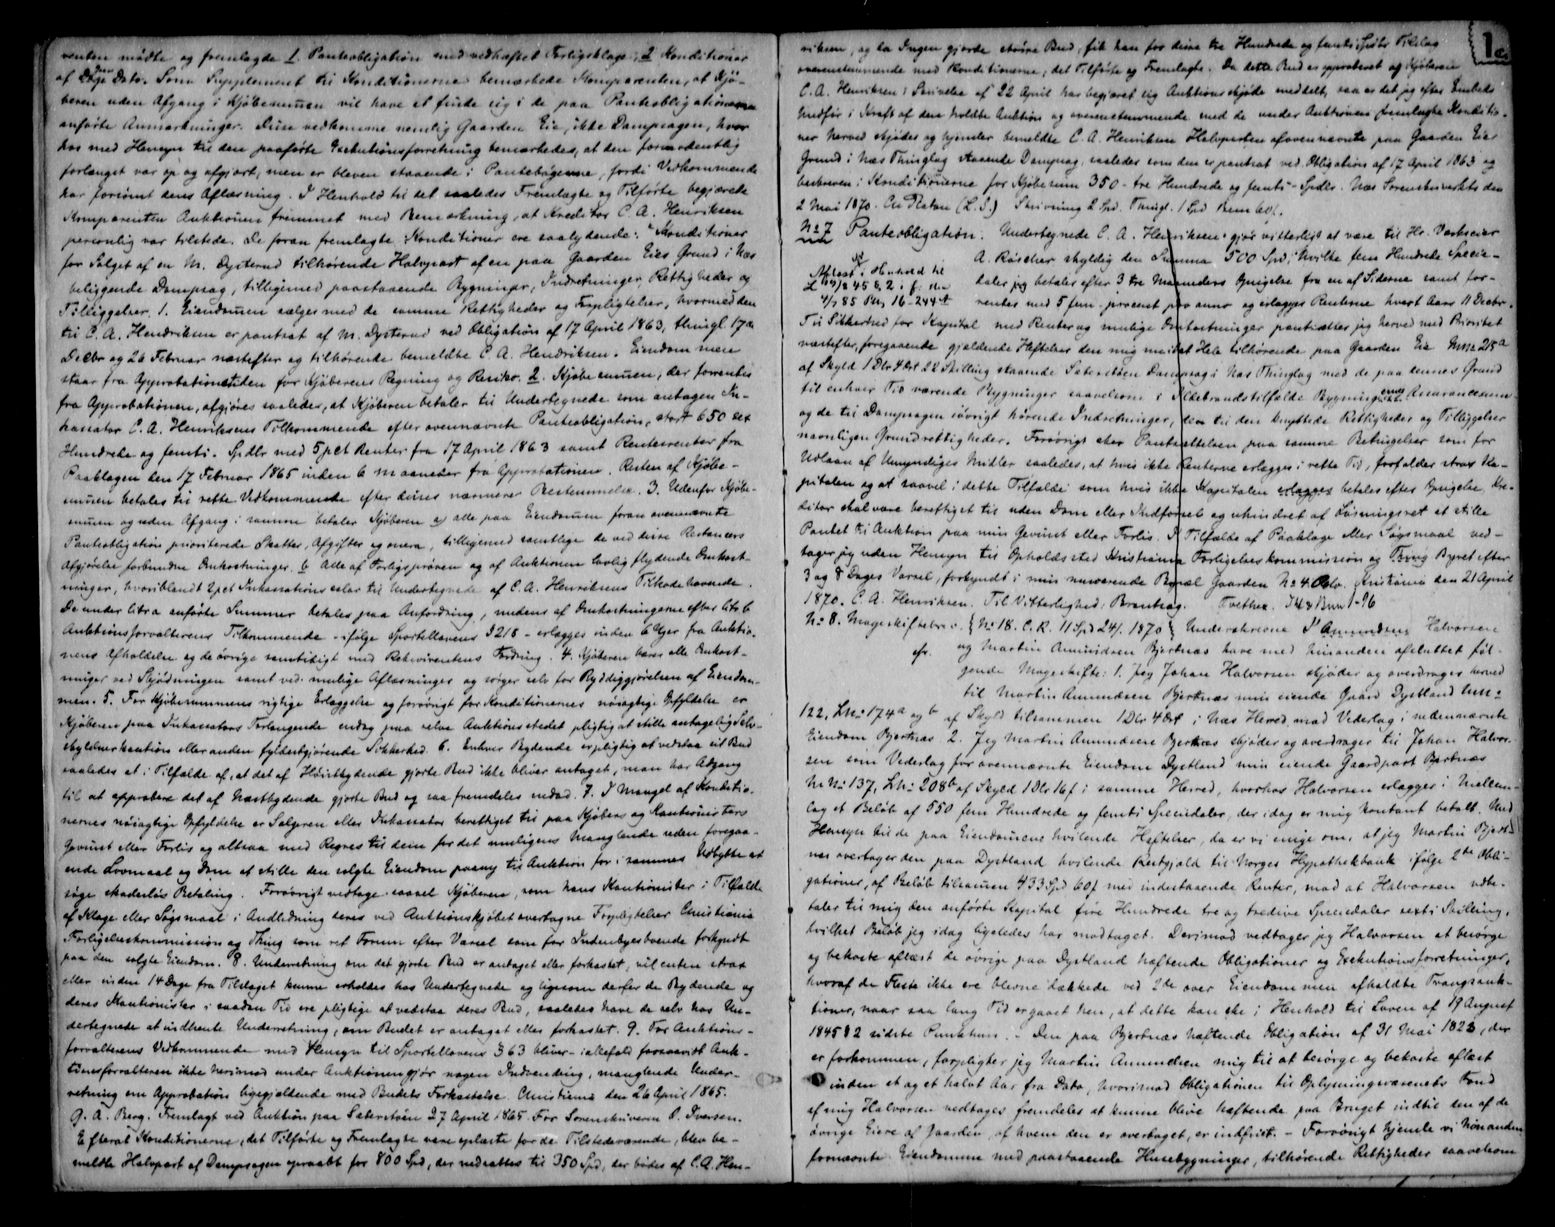 venten mødte og fremlagde 1. Panteobligation med vedhæftet Forligsklage; 2 Konditioner
af Dags Dato. Som Supplement til Konditionerne bemærkede Komparenten, at Kjø-
beren uden Afgang i Kjøbesummen vil have at finde sig i de paa Panteobligationen
anførte Anmærkninger. Disse vedkomme nemlig Gaarden Eie, ikke Dampsagen, hvor
hos med Hensyn til den paaførte Exekutionsforretning bemærkedes, at den forlængst
var op og afgjort, men er bleven staaende i Pantebøgerne, fordi Vedkommende
har forsømt dens Aflæsning. I Henhold til det saaledes Fremlagte og Tilførte begjærede
Komparenten Auktionen fremmet med Bemærkning, at Kreditor C. A. Henriksen
personlig var tilstede. De foran fremlagte Konditioner ere saalydende: "Konditioner
for Salget af en M. Dysterud tilhørende Halvpart af en paa Gaarden Eies Grund i Næs
beliggende Dampsag, tilligemed paastaaende Bygninger, Indretninger, Rettigheder og
Tilliggelser. 1. Eiendommen sælges med de samme Rettigheder og Forpligtelser, hvormed den
til C. A. Hendriksen er pantsat af M. Dysterud ved Obligation af 17 April 1863, thingl. 17de
Decbr og 26 Februar næstefter og tilhørende bemeldte C. A. Hendriksen. Eiendommen
staar fra Approbationstiden for Kjøberens Regning og Resiko. 2. Kjøbesummen, der forrentes
fra Approbationen, afgjøres saaledes, at Kjøberen betaler til Undertegnede som antagen In-
kassator C. A. Henriksens Tilkommende efter ovennævnte Panteobligation, stort 650 sex
Hundrede og femti Spdlr med 5 pct Renter fra 17 April 1863 samt Renterenter fra
Paaklagen den 17 Februar 1865 inden 6 maaneder fra Approbationen. Resten af Kjøbe-
summen betales til rette Vedkommende efter deres nærmere Bestemmelse. 3. Udenfor Kjøbe-
summen og uden Afgang i samme betaler Kjøberen a) alle paa Eiendommen foran ovennævnte
Panteobligation prioriterede Skatter, Afgifter og onera, tilligemed samtlige de ved disse Restancers
Afgjørelse forbundne Omkostninger. b Alle af Forligsprøven og af Auktionen lovlig flydende Omkost-
ninger, hvoriblandt 2 pct Inkassationssalær til Undertegnede af C. A. Henriksens Tilkodehavende.
De under litra a anførte Summer betales paa Anfordring, medens af Omkostningerne efter litr b
Auktionsforvalterens Tilkommende - ifølge Sportellovens §218 - erlægges inden 6 Uger fra Auktio-
nens Afholdelse og de øvrige samtidigt med Rekvirentens Fordring. 4. Kjøberen bærer alle Omkost-
ninger ved Skjødningen samt ved mulige Aflæsninger og sørger selv for Ryddiggjørelsen af Eiendom-
men. 5. For Kjøbesummens rigtige Erlæggelse og forøvrigt for Konditionernes nøiagtige Opfyldelse er
Kjøberen paa Inkassators Forlangende endog paa selve Auktionsstedet pligtig at stille antagelig Selv-
skyldnerkaution eller anden fyldestgjørende Sikkerhed. 6. Enhver Bydende er pligtig at vedstaa sit Bud
saaledes at i Tilfælde af, at det af Høistbydende gjorte Bud ikke bliver antaget, man har Adgang
til at approbere det af Næstbydende gjorte Bud og saa fremdeles nedad. 7. I Mangel af Konditio-
nernes nøiagtige Opfyldelse er Sælgeren eller Inkassator berettiget til paa Kjøbers og Kautionisters
Gevinst eller Forlis og altsaa med Regres til dem for det muligens Manglende uden foregaa-
ende Lovmaal og Dom at stille den solgte Eiendom paany til Auktion for i sammes Udbytte at
søge skadesløs Betaling. Forøvrigt vedtage saavel Kjøberen, som hans Kautionister i Tilfælde
af Klage eller Søgsmaal i Anledning deres ved Auktionskjøbet overtagne Forpligtelser Christiania
Forligelseskommission og Thing som ret Forum efter Varsel som for Indenbyesboende forkyndt
paa den solgte Eiendom. 8. Underretning om det gjorte Bud er antaget eller forkastet, vil enten strax
eller inden 14 Dage fra Tilslaget kunne erholdes hos Undertegnede og ligesom derfor de Bydende og
deres Kautionister i saadan Tid ere pligtige at vedstaa deres Bud, saaledes have de selv hos Un-
dertegnede at indhente Underretning, om Budet er antaget eller forkastet. 9. For Auktions-
forvalterens Vedkommende med Hensyn til Sportellovens § 63 bliver - ialfald forsaavidt Auk-
tionsforvalteren ikke herimod under Auktionen gjør nogen Indvending, manglende Under-
retning om Approbation ligegjældende med Budets Forkastelse. Christiania den 26 April 1865.
G. A. Berg. Fremlagt ved Auktion paa Saterstøen 27 April 1865. For Sorenskriveren O. Iversen.
Efterat Konditionerne, det Tilførte og Fremlagte vare oplæste for de Tilstedeværende, blev be-
meldte Halvpart af Dampsagen opraabt for 800 Spd, der nedsattes til 350 Spd, der bødes af C. A. Hen-
riksen, og da Ingen gjorde større Bud, fik han for disse tre Hundrede og femti Spdlr Tilslag
overensstemmende med Konditionerne, det Tilførte og Fremlagte. Da dette Bud er approberet og Kjøberen
C. A. Henriksen i Skrivelse af 22 April har begjæret sig Auktionsskjøde meddelt, saa er det jeg efter Embeds
Medfør i Kraft af den holdte Auktion og overensstemmende med de under Auktionen fremlagte Konditio-
ner herved skjøder og hjemler bemeldte C. A. Henriksen Halvparten af ovennævnte paa Gaarden Eies
Grund i Næs Thinglag staaende Dampsag, saaledes som den er pantsat ved Obligation af 17 April 1863 og
beskreven i Konditionerne for Kjøbesum 350 - tre Hundrede og femti - Spdlr. Næs Sorenskriverkts den
2 Mai 1870. (L.S.) Skrivning 2 Spd. Thingl. 1 Spd
No 7 Panteobligation. Undertegnede C. A. Henriksen gjør vitterligt at være til Hr. Værkseier
A. Røscher skyldig den Summa 500 Spd, hvilke fem Hundrede Specie-
Aflæst i Henhold til
daler jeg betaler efter 3 tre Maaneders Opsigelse fra en af Siderne samt for-
rentes med 5 fem procent pro anno og erlægges Renterne hvert Aars 11 Decbr.
Til Sikkerhed for Kapital med Renter og mulige Omkostninger pantsætter jeg herved med Prioritet
næstefter foregaaende gjældende Heftelser den mig nu i det Hele tilhørende paa Gaarden Eie MNo 215a
af Skyld 1 Dlr 4 Ort 22 Skilling staaende Saterstøen Dampsag i Næs Thinglag med de paa dennes Grund
til enhver Tid værende Bygninger saavelsom i Ildebrandstilfælde Bygningernes Assurancesum
og de til Dampsagen iøvrigt hørende Indretninger, den til den knyttede Rettigheder og Tilliggelser
navnligen Grundrettigheder. Forøvrigt sker Pantsættelsen paa samme Betingelser som for
Udlaan af Umyndiges Midler saaledes, at hvis ikke Renterne erlægges i rette Tid, forfalder strax Ka-
pitalen og at saavel i dette Tilfælde som hvis ikke Kapitalen erlægges betales efter Opsigelse, Kre-
ditor skal være berettiget til uden Dom eller Indførsel og uhindret af Løsningsret at stille
Pantet til Auktion paa min Gevinst eller Forlis. I Tilfælde af Paaklage eller Søgsmaal ved-
tager jeg uden Hensyn til Opholdssted Kristiania Forligelseskommission og Byret efter
3 og 8 Dages Varsel, forkyndt i min nuværende Bopæl Gaarden No 4 Kristiania den 21 April
1870. C. A. Henriksen. Til Vitterlighed:
No 8. Mageskiftebrev. { No 18. C. K. 11 Spd 24/. 1870 } Underskrevne J. Amundsen Halvorsen
og Martin Amundsen Bjertnæs have med hinanden afsluttet føl-
gende Mageskifte: 1. Jeg Johan Halvorsen skjøder og overdrager herved
til Martin Amundsen Bjertnæs min eiende Gaard Dystland MNo
122, LNo 174a og b af Skyld tilsammen 1 Dlr 4 Ort i Næs Herred mod Vederlag i nedennævnte
Eiendom Bjertnæs 2. Jeg Martin Amundsen Bjertnæs skjøder og overdrager til Johan Halvor-
sen som Vederlag for ovennævnte Eiendom Dystland min eiende Gaardpart Bjertnæs
MNo 137, LNo 208b af Skyld 1 Dlr 16 f i samme Herred, hvorhos Halvorsen erlægger i Mellem-
lag et Beløb af 550 fem Hundrede og femti Speciedaler, der idag er mig kontant betalt. Med
Hensyn til de paa Eiendommene hvilende Heftelser, da er vi enige om, at jeg Martin Bjert-
næs overtager den paa Dystland hvilende Restgjæld til Norges Hypothekbank ifølge 2de Obli-
gationer, af Beløb tilsammen 433 Spd 60 f med indestaaende Renter, mod at Halvorsen udbe-
taler til mig den anførte Kapital fire Hundrede tre og tredive Speciedaler sexti Skilling,
hvilket Beløb jeg idag ligeledes har modtaget. Derimod vedtager jeg Halvorsen at besørge
og bekoste aflæst de øvrige paa Dystland hæftende Obligationer og Exekutionsforretninger,
hvoraf de Fleste ikke ere blevne dækkede ved 2de over Eiendommen afholdte Tvangsauk-
tioner, naar saa lang Tid er gaaet hen, at dette kan ske i Henhold til Loven af 19 August
1845 § 2 sidste Punktum. - Den paa Bjertnæs hæftende Obligation af 31 Mai 1823, der
er forkommen, forpligter jeg Martin Amundsen mig til at besørge og bekoste aflæst
inden et og et halvt Aar fra Dato, hvorimod Obligationen til Oplysningsvæsenets Fond
af mig Halvorsen vedtages fremdeles at kunne blive hæftende paa Bruget indtil den af de
øvrige Eiere af Gaarden, af hvem den er overtaget, er indfriet. - Forøvrigt hjemle vi hinanden
fornævnte Eiendomme med paastaaende Husebygninger, tilhørende Rettigheder saavelsom